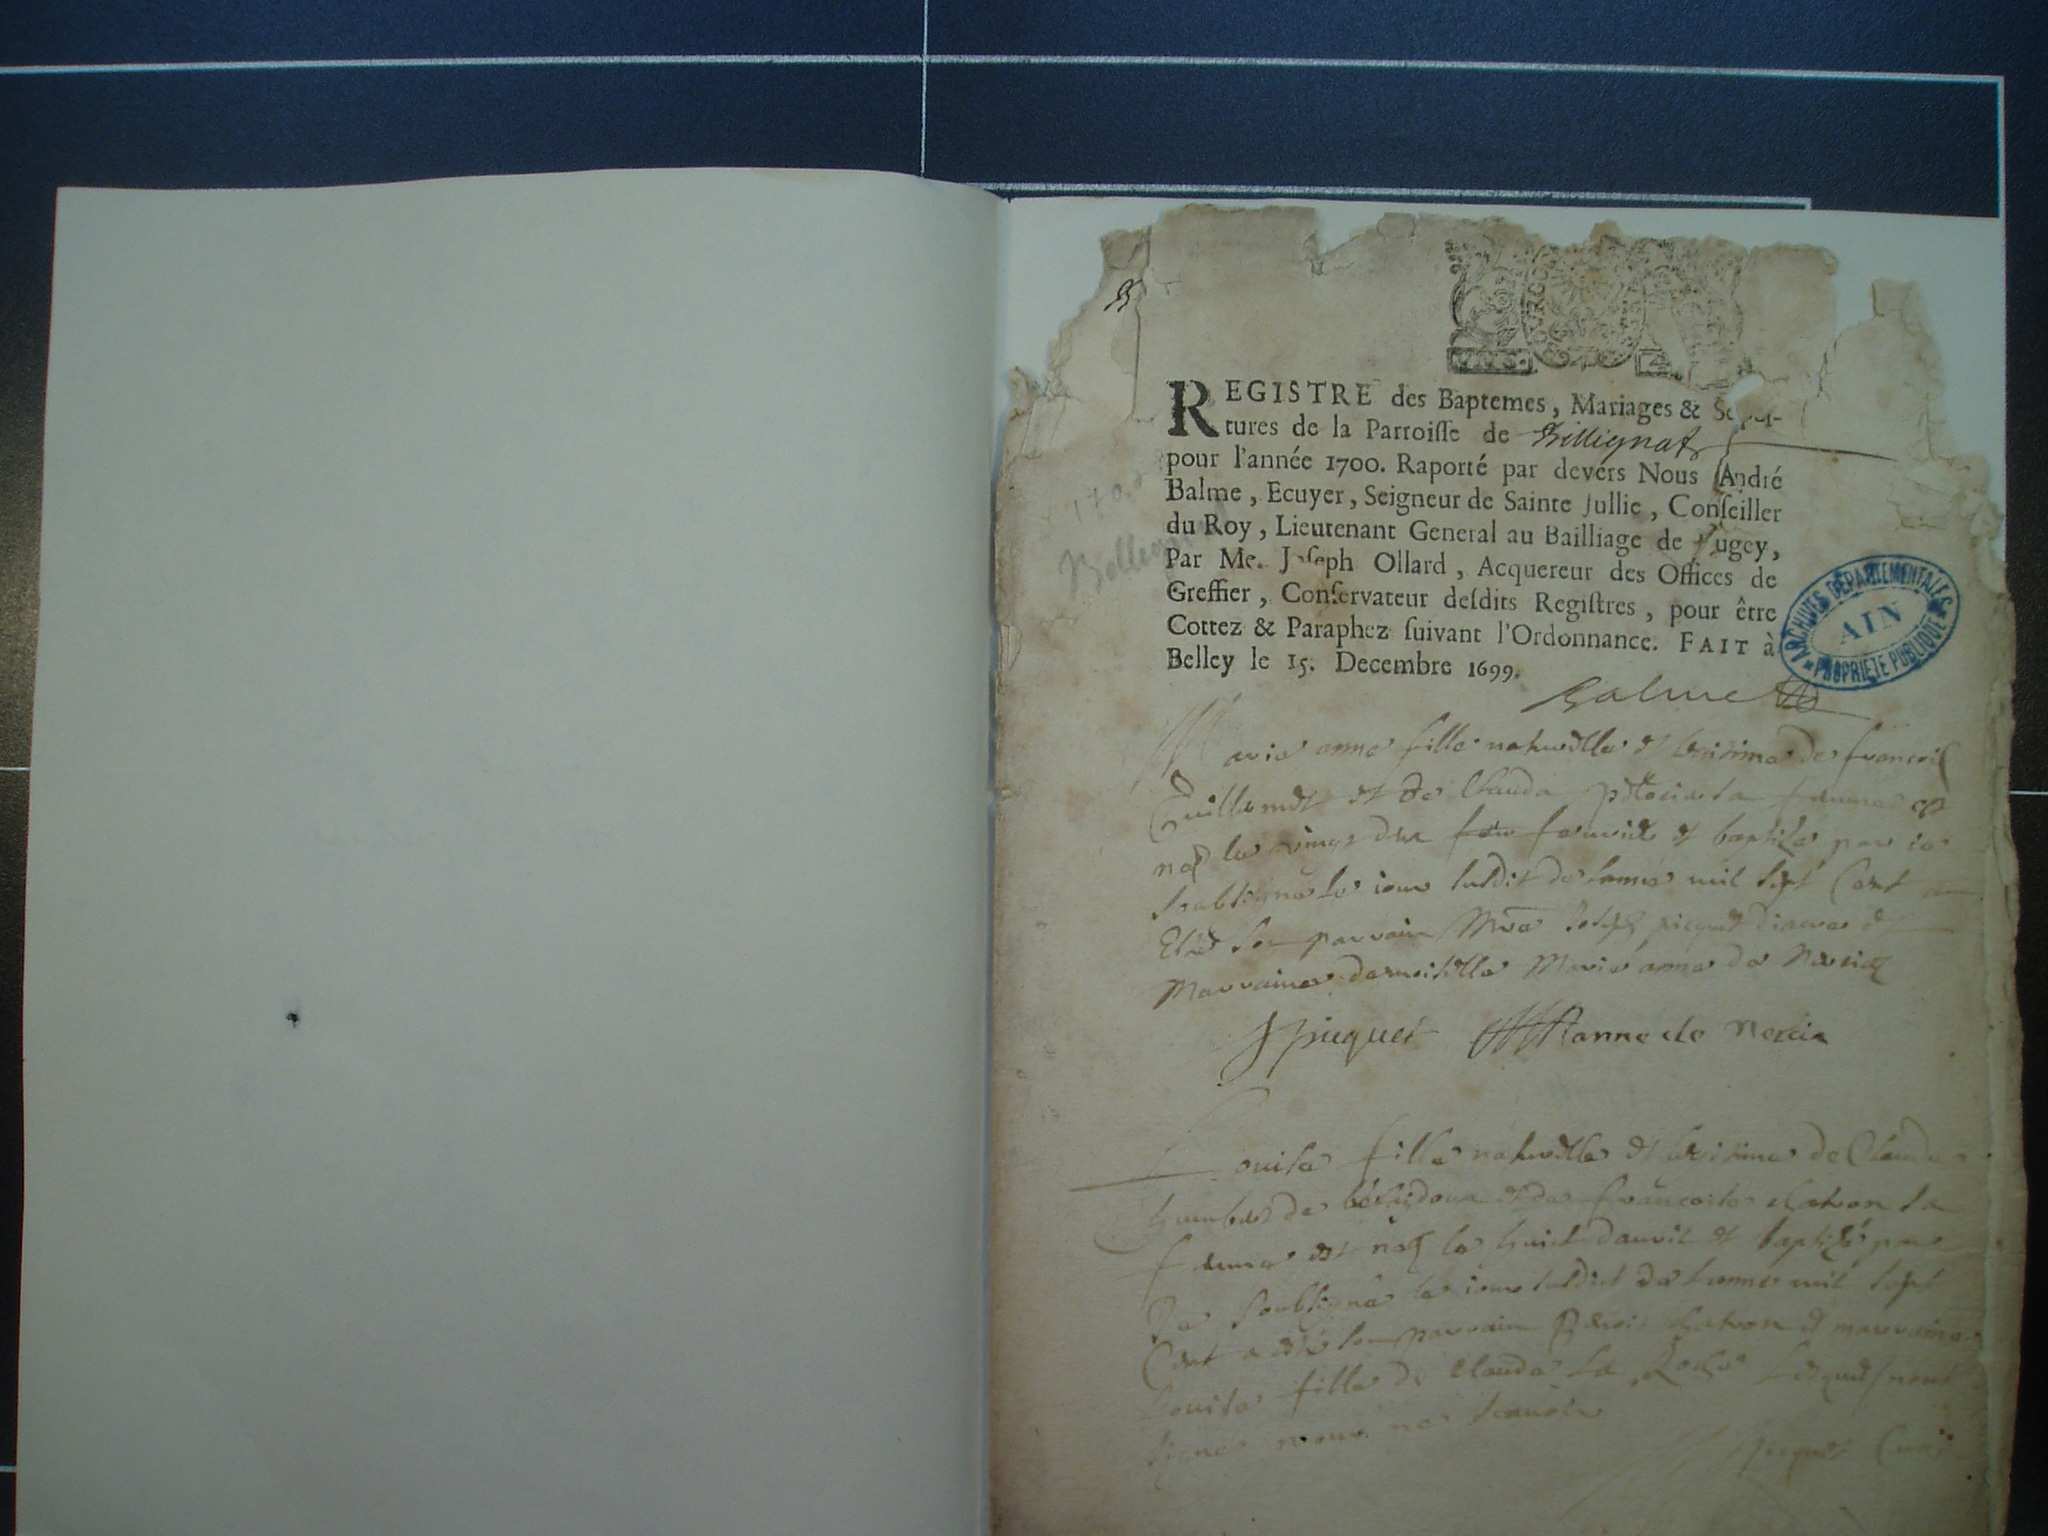 REGISTRE des Baptemes, Mariages & Sepul-
tures de la Parroisse de Billignat
pour l'année 1700. Raporté par devers Nous André
Balme, Ecuyer, Seigneur de Sainte Jullie, Conseiller
du Roy, Lieutenant General au Bailliage de Bugey,
Par Me. Joseph Ollard, Acquereur des Offices de
Greffier, Conservateur desdits Registres, pour être
Cottez & Paraphez suivant l'Ordonnance. FAIT à
Belley le 15. Decembre 1699.
Balme
ARCHIVES DÉPARTEMENTALES
AIN
PROPRIÉTÉ PUBLIQUE
1700
Marie anne fille naturelle et legitime de francois
Guillermet et de Clauda femme est
baptisée par ie
soubsigné le iour susdit de lannee mil sept Cent a
Esté son parrain Joseph piquet diacre et
Marraine damoiselle Marie anne de Nercia
J piquet M anne de Nercia
Louise fille naturelle et legitime de Claude
humbert de et de francoise chatron sa
femme est neé le huict dauril et baptiseé par
Je soubsigné le iour susdict de lannee mil sept
Cent a esté son parrain chatron et marraine
Louise fille de Claude La Roche Lesquels nont
signé pour ne scauoir
piquet Curé